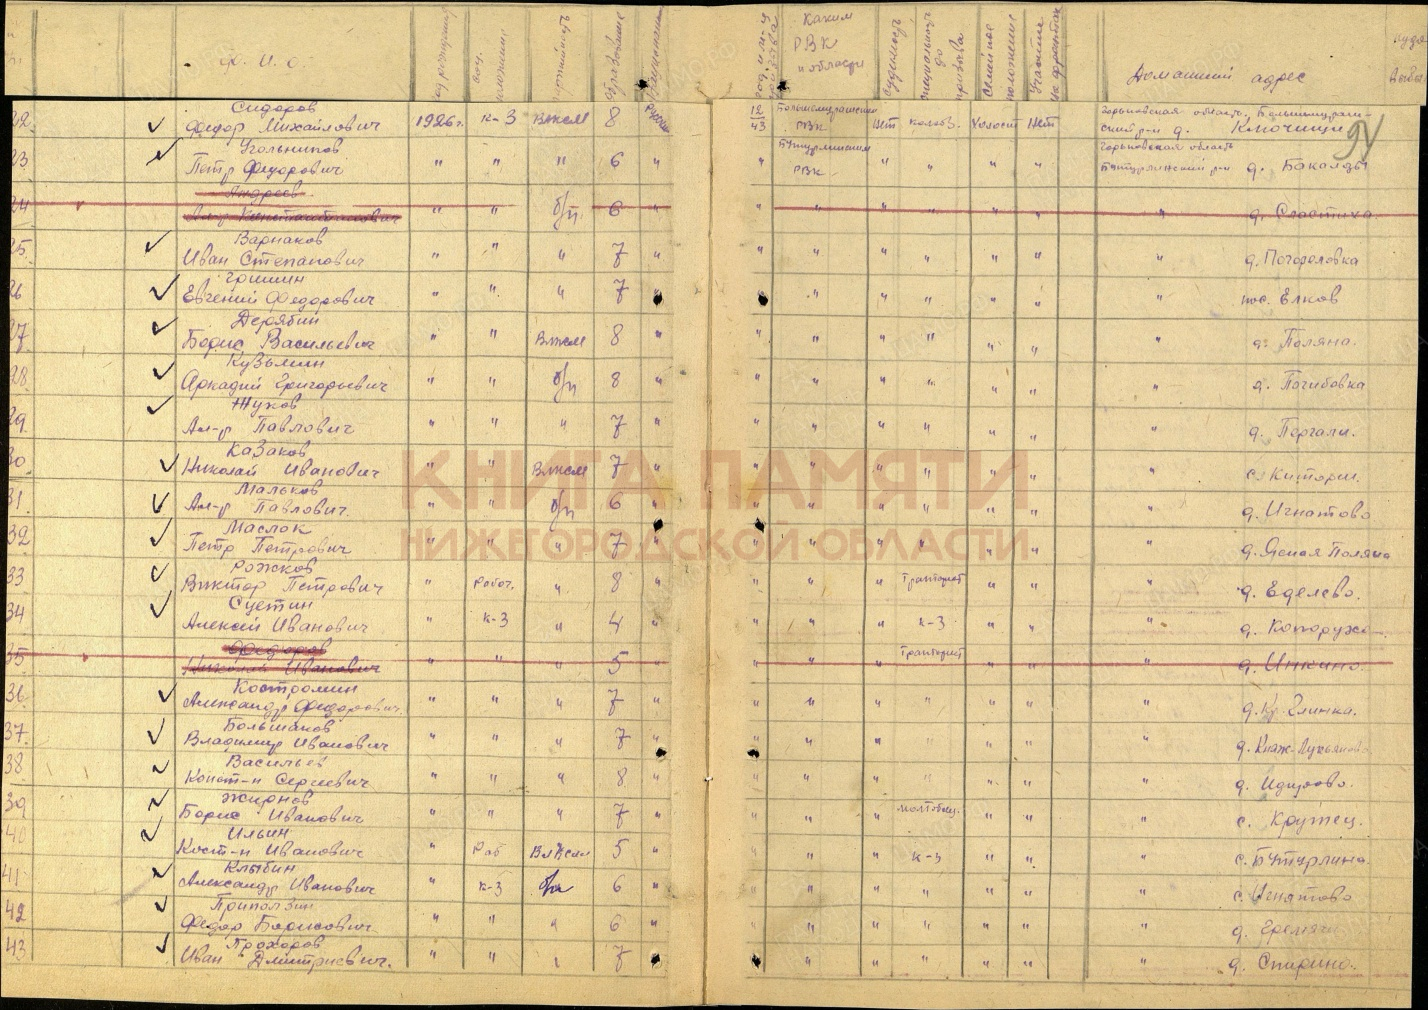 Ф. И. О.
год рождения
соц. положение
партийность
образование
год и м-ц призыва
Каким РВК и области
судимость
специальность до призыва
Семейное положение
Участие на фронтах
Домашний адрес
куда выбыл
22 Сидоров Федор Михайлович 1926 г. к-з ВЛКСМ 8 русский 12/43 Большемурашкинск РВК нет колхоз. холост нет Горьковская область, Большемурашкинский р-н д. Ключищи
94
23 Угольников Петр Федорович " " " 6 " " Бутурлинский РВК " " " " Горьковская область Бутурлинский р-н д. Бакалды
24 Андреев Ал-р Константинович " " б/п 6 " " " " " " " д. Сластиха
25 Варнаков Иван Степанович " " " 7 " " " " " " " " д. Погореловка
26 Гришин Евгений Федорович " " " 7 " " " " " " " " пос. Елхов
27 Дерябин Борис Васильевич " " ВЛКСМ 8 " " " " " " " " д. Поляна.
28 Кузьмин Аркадий Григорьевич " " б/п 8 " " " " " " " " д. Погибовка
29 Жуков Ал-р Павлович " " " 7 " " " " " " " " д. Пергали.
30 Казаков Николай Иванович " " ВЛКСМ 7 " " " " " " " " с. Китории.
КНИГА ПАМЯТИ
31 Мальков Ал-р Павлович. " " б/п 6 " " " " " " " " д. Игнатово
32 Маслак Петр Петрович " " " 7 " " " " " " " " д. Ясная Поляна
НИЖЕГОРОДСКОЙ ОБЛАСТИ
33 Рожков Виктор Петрович " Рабоч. " 8 " " " " тракторист " " " д. Еделево.
34 Суетин Алексей Иванович " к-з " 4 " " " " к-з " " " д. Каморужа
35 Федоров Николай Иванович " " " 5 " " " " тракторист " " " д. Инкино.
36 Костромин Александр Федорович. " " " 7 " " " " " " " " д. Кр. Глинка.
37. Большаков Владимир Иванович " " " 7 " " " " " " " " д. Княж-Лукьяново
38 Васильев Конст-н Сергеевич " " " 8 " " " " " " " " д.
39 Жирнов Борис Иванович " " " 7 " " " " молтобоец. " " " с. Кружец.
40 Ильин Кост-н Иванович " Раб ВЛКСМ 5 " " " " к-з " " " с. Бутурлино.
41 Клыбин Александр Иванович " к-з б/п 6 " " " " " " " " с. Игнатово
42 Приползин Федор Борисович " " " 6 " " " " " " " " д. Гремячи
43 Прохоров Иван Дмитриевич. " " " 7 " " " " " " " " д. Спирино.